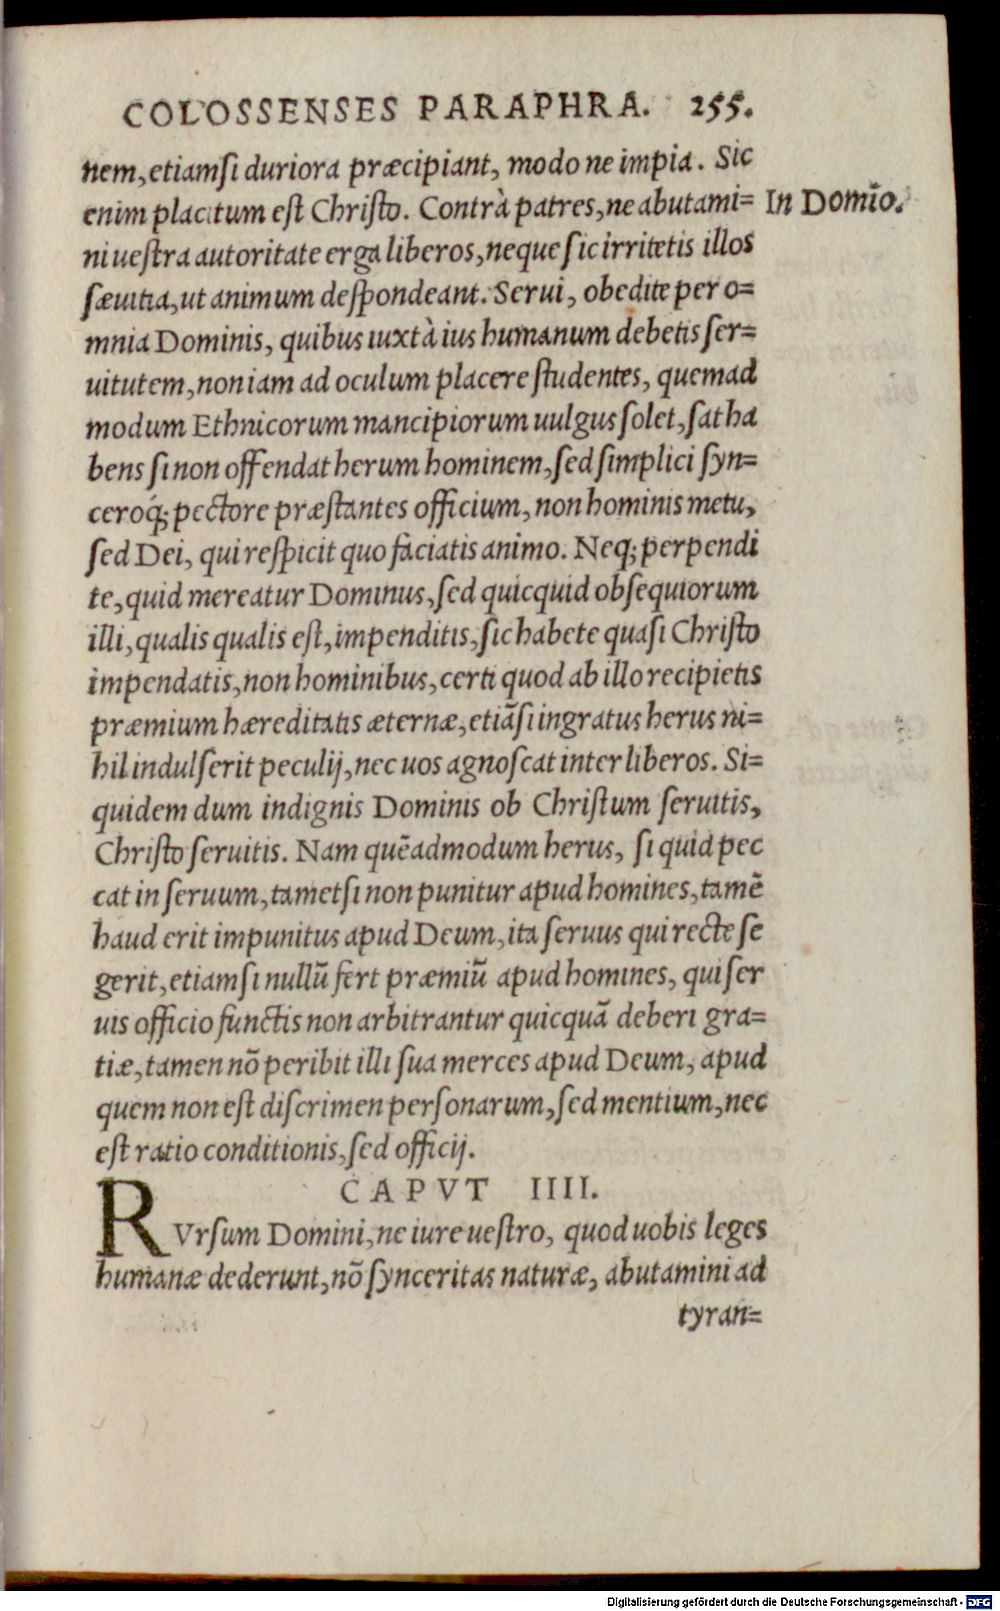 COLOSSENSES PARAPHRA. 255.
nem, etiamsi duriora præcipiant, modo ne impia. Sic
enim placitum est Christo. Contrà patres, ne abutami=
In Domĩo.
ni uestra autoritate erga liberos, neque sic irritetis illos
sæuitia, ut animum despondeant. Serui, obedite per o=
mnia Dominis, quibus iuxtà ius humanum debetis ser=
uitutem, non iam ad oculum placere studentes, quemad
modum Ethnicorum mancipiorum uulgus solet, sat ha
bens si non offendat herum hominem, sed simplici syn=
ceroq́; pectore præstantes officium, non hominis metu,
sed Dei, qui respicit quo faciatis animo. Neq; perpendi
te, quid mereatur Dominus, sed quicquid obsequiorum
illi, qualis qualis est, impenditis, sic habete quasi Christo
impendatis, non hominibus, certi quod ab illo recipietis
præmium hæreditatis æternæ, etiãsi ingratus herus ni=
hil indulserit peculij, nec uos agnoscat inter liberos. Si=
quidem dum indignis Dominis ob Christum seruitis,
Christo seruitis. Nam quẽadmodum herus, si quid pec
cat in seruum, tametsi non punitur apud homines, tamẽ
haud erit impunitus apud Deum, ita seruus qui recte se
gerit, etiamsi nullũ fert præmiũ apud homines, qui ser
uis officio functis non arbitrantur quicquã deberi gra=
tiæ, tamen nõ peribit illi sua merces apud Deum, apud
quem non est discrimen personarum, sed mentium, nec
est ratio conditionis, sed officij.
CAPVT IIII.
RVrsum Domini, ne iure uestro, quod uobis leges
humanæ dederunt, nõ synceritas naturæ, abutamini ad
tyran=
Digitalisierung gefördert durch die Deutsche Forschungsgemeinschaft - DFG